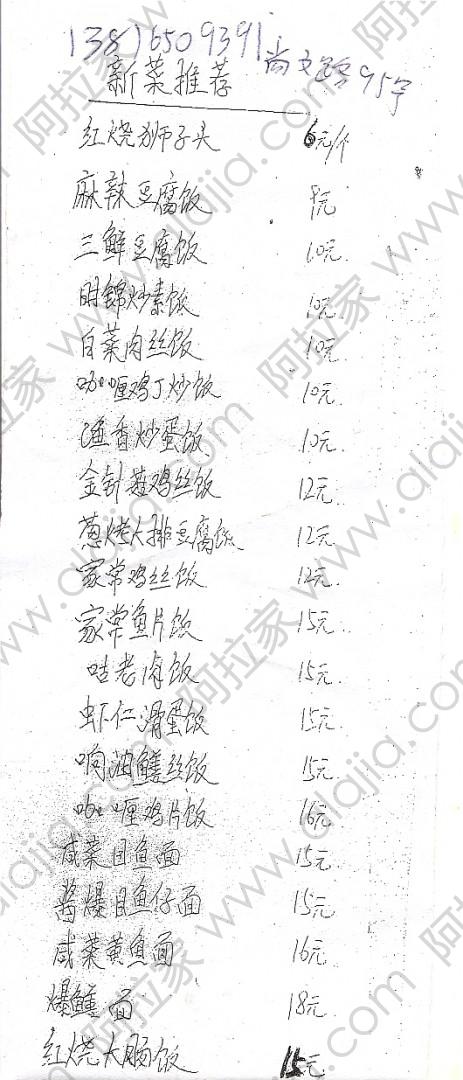 13816509391 尚文路95号
新菜推荐
红烧狮子头 6元/个
麻辣豆腐饭 9元
三鲜豆腐饭 10元.
什锦炒素饭 10元
白菜肉丝饭 10元
咖喱鸡丁炒饭 10元.
渔香炒蛋饭 10元
金针菇鸡丝饭 12元
葱烤大排豆腐饭 12元.
家常鸡丝饭 12元
家常鱼片饭 15元.
咕老肉饭 15元.
虾仁滑蛋饭 15元.
响油鳝丝饭 15元
咖喱鸡片饭 16元
咸菜目鱼面 15元.
酱爆目鱼仔面 15元
咸菜黄鱼面 16元
爆鳝面 18元
红烧大肠饭 15元
阿拉家 www.alajia.com